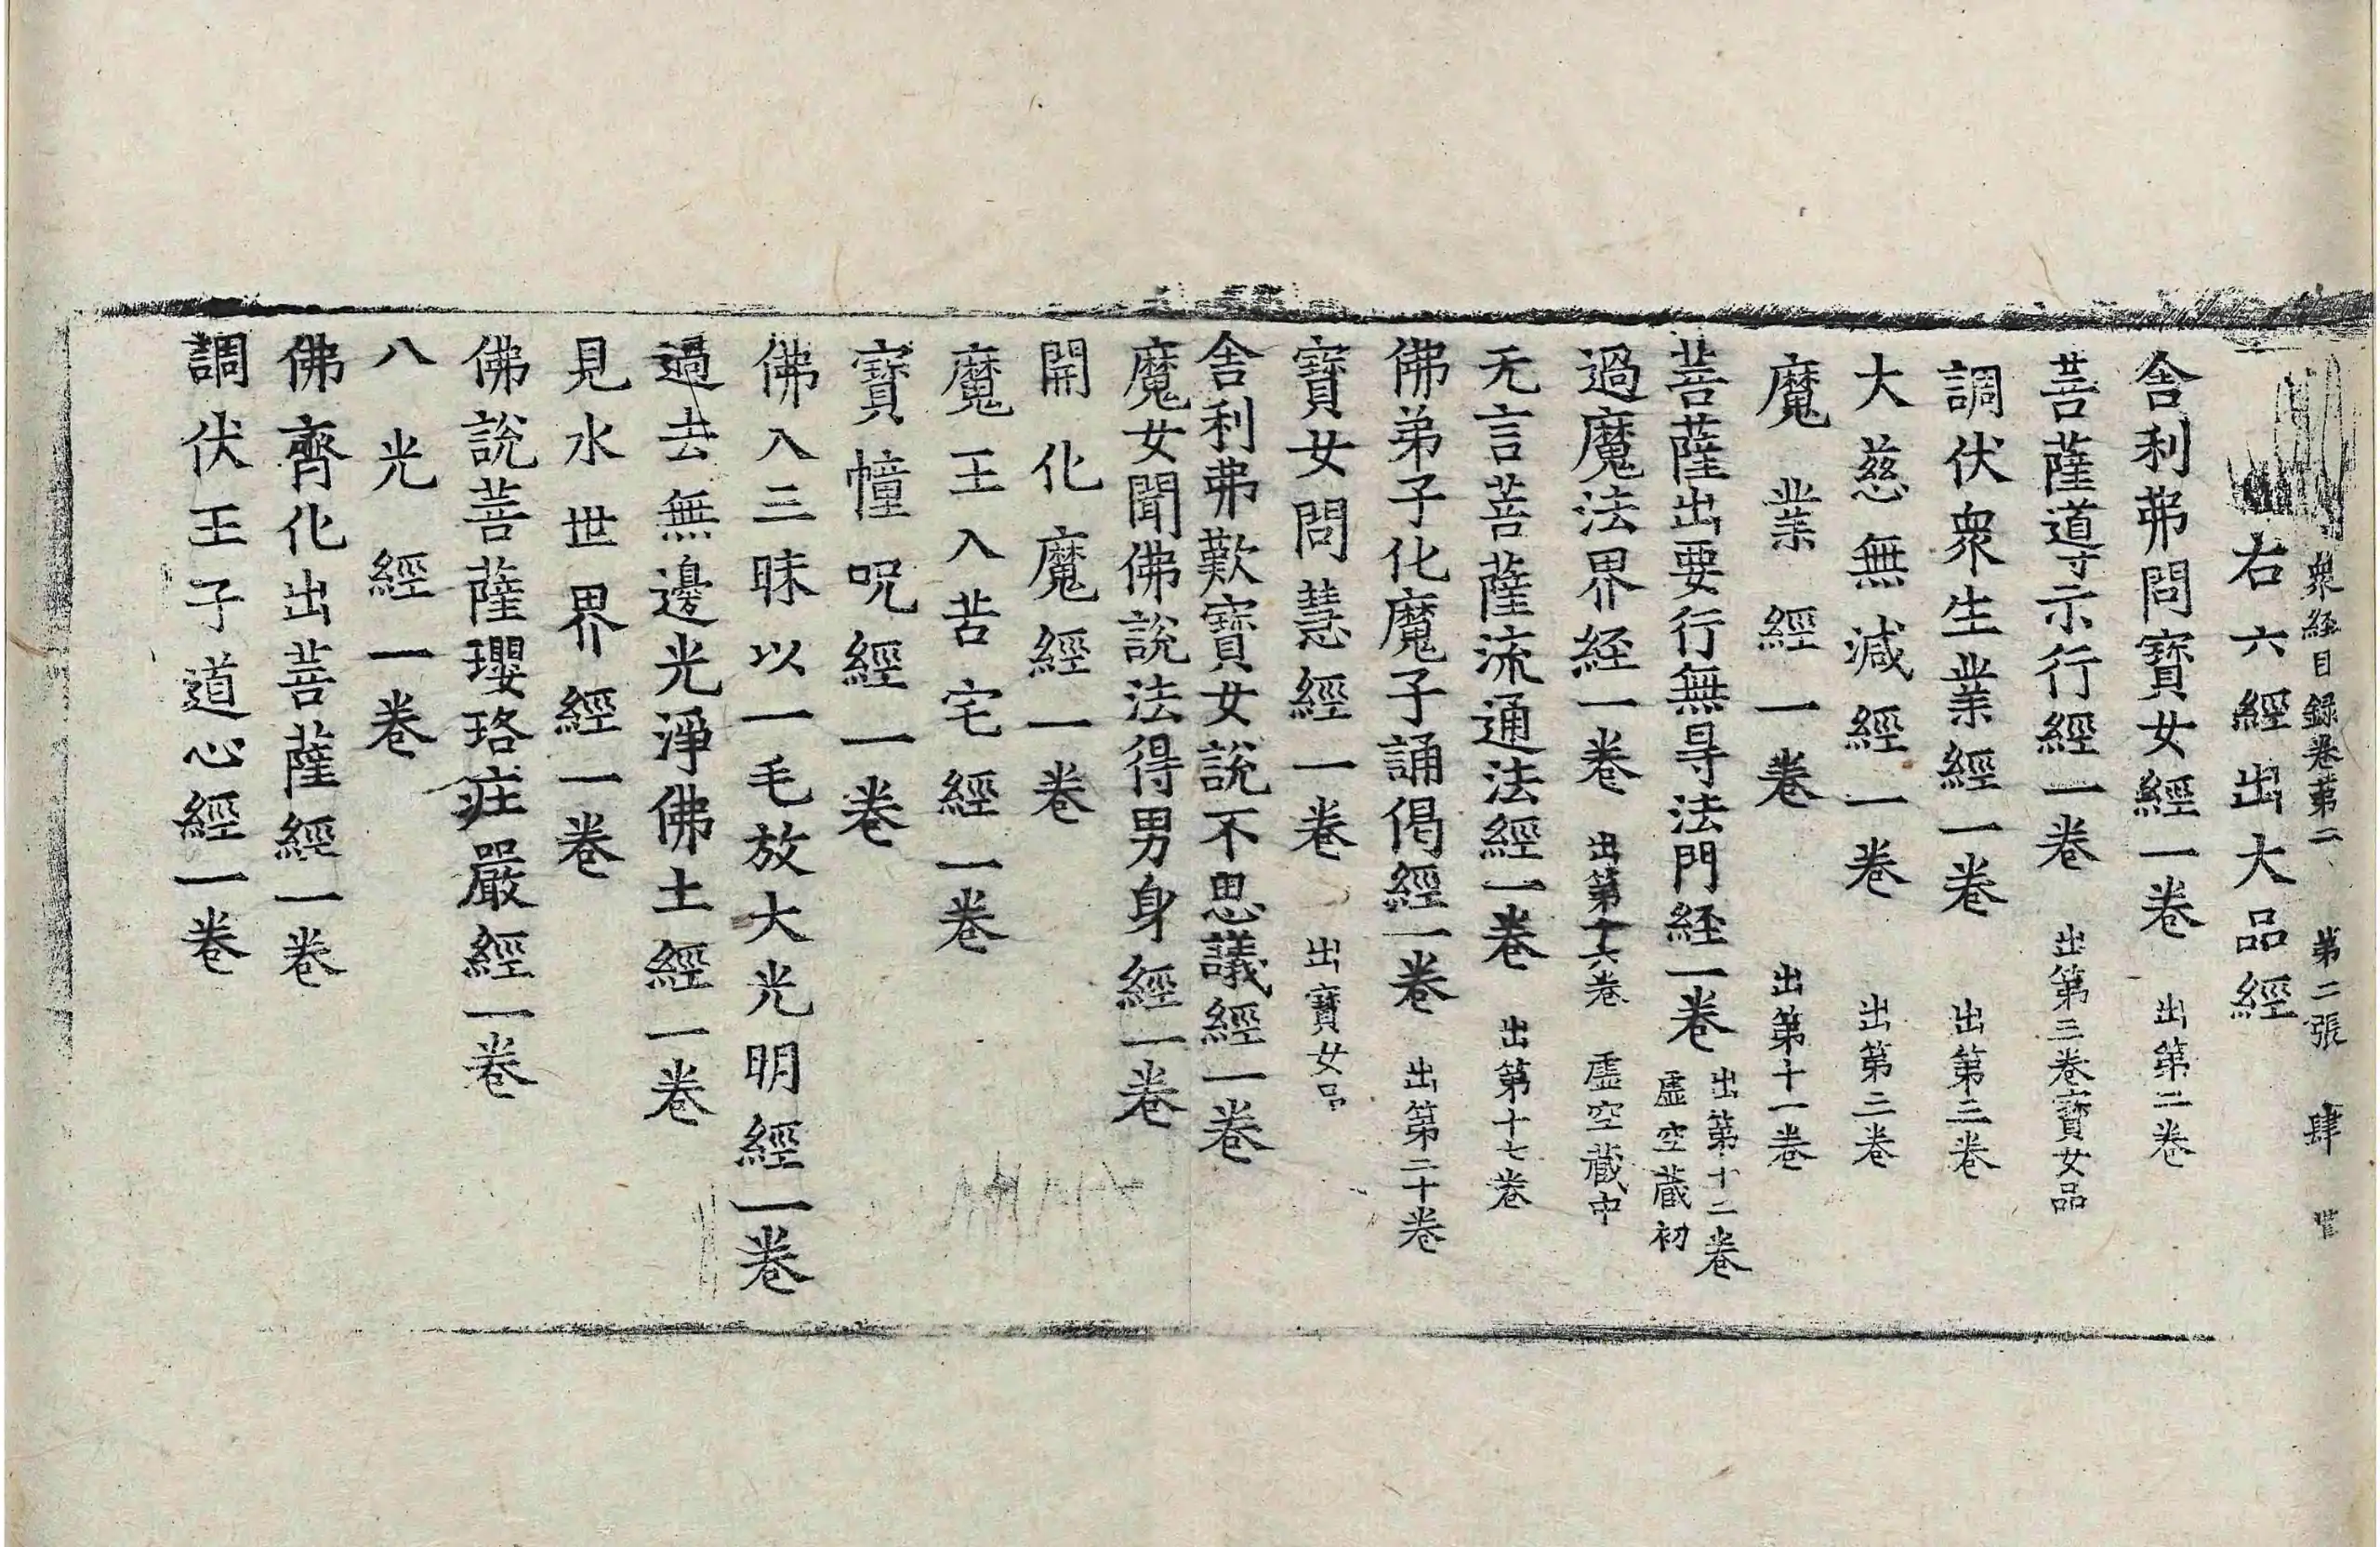 衆經目録卷苐二　第二張　肆
右六經出大品經
舍利弗問寳女經一卷　出第二卷
菩薩導示行經一卷　出第三卷寳女品
調伏衆生業經一卷　出第三卷
大慈無減經一卷　出第二卷
魔業經一卷　出第十一卷
菩薩出要行無㝵法門経一卷　出第十二卷
虛空藏初
過魔法界経一卷　出第十六卷　虛空藏中
无言菩薩流通法經一卷　出第十七卷
佛弟子化魔子誦偈經一卷　出第二十卷
寳女問慧經一卷　出寳女品
舍利弗歎寳女說不思議經一卷
魔女聞佛說法得男身經一卷
開化魔經一卷
魔王入苦宅經一卷
寳幢呪經一卷
佛入三昧以一毛放大光明經一卷
過去無邊光淨佛土經一卷
見水世界經一卷
佛說菩薩瓔珞莊嚴經一卷
八光經一卷
佛齊化出菩薩經一卷
調伏王子道心經一卷